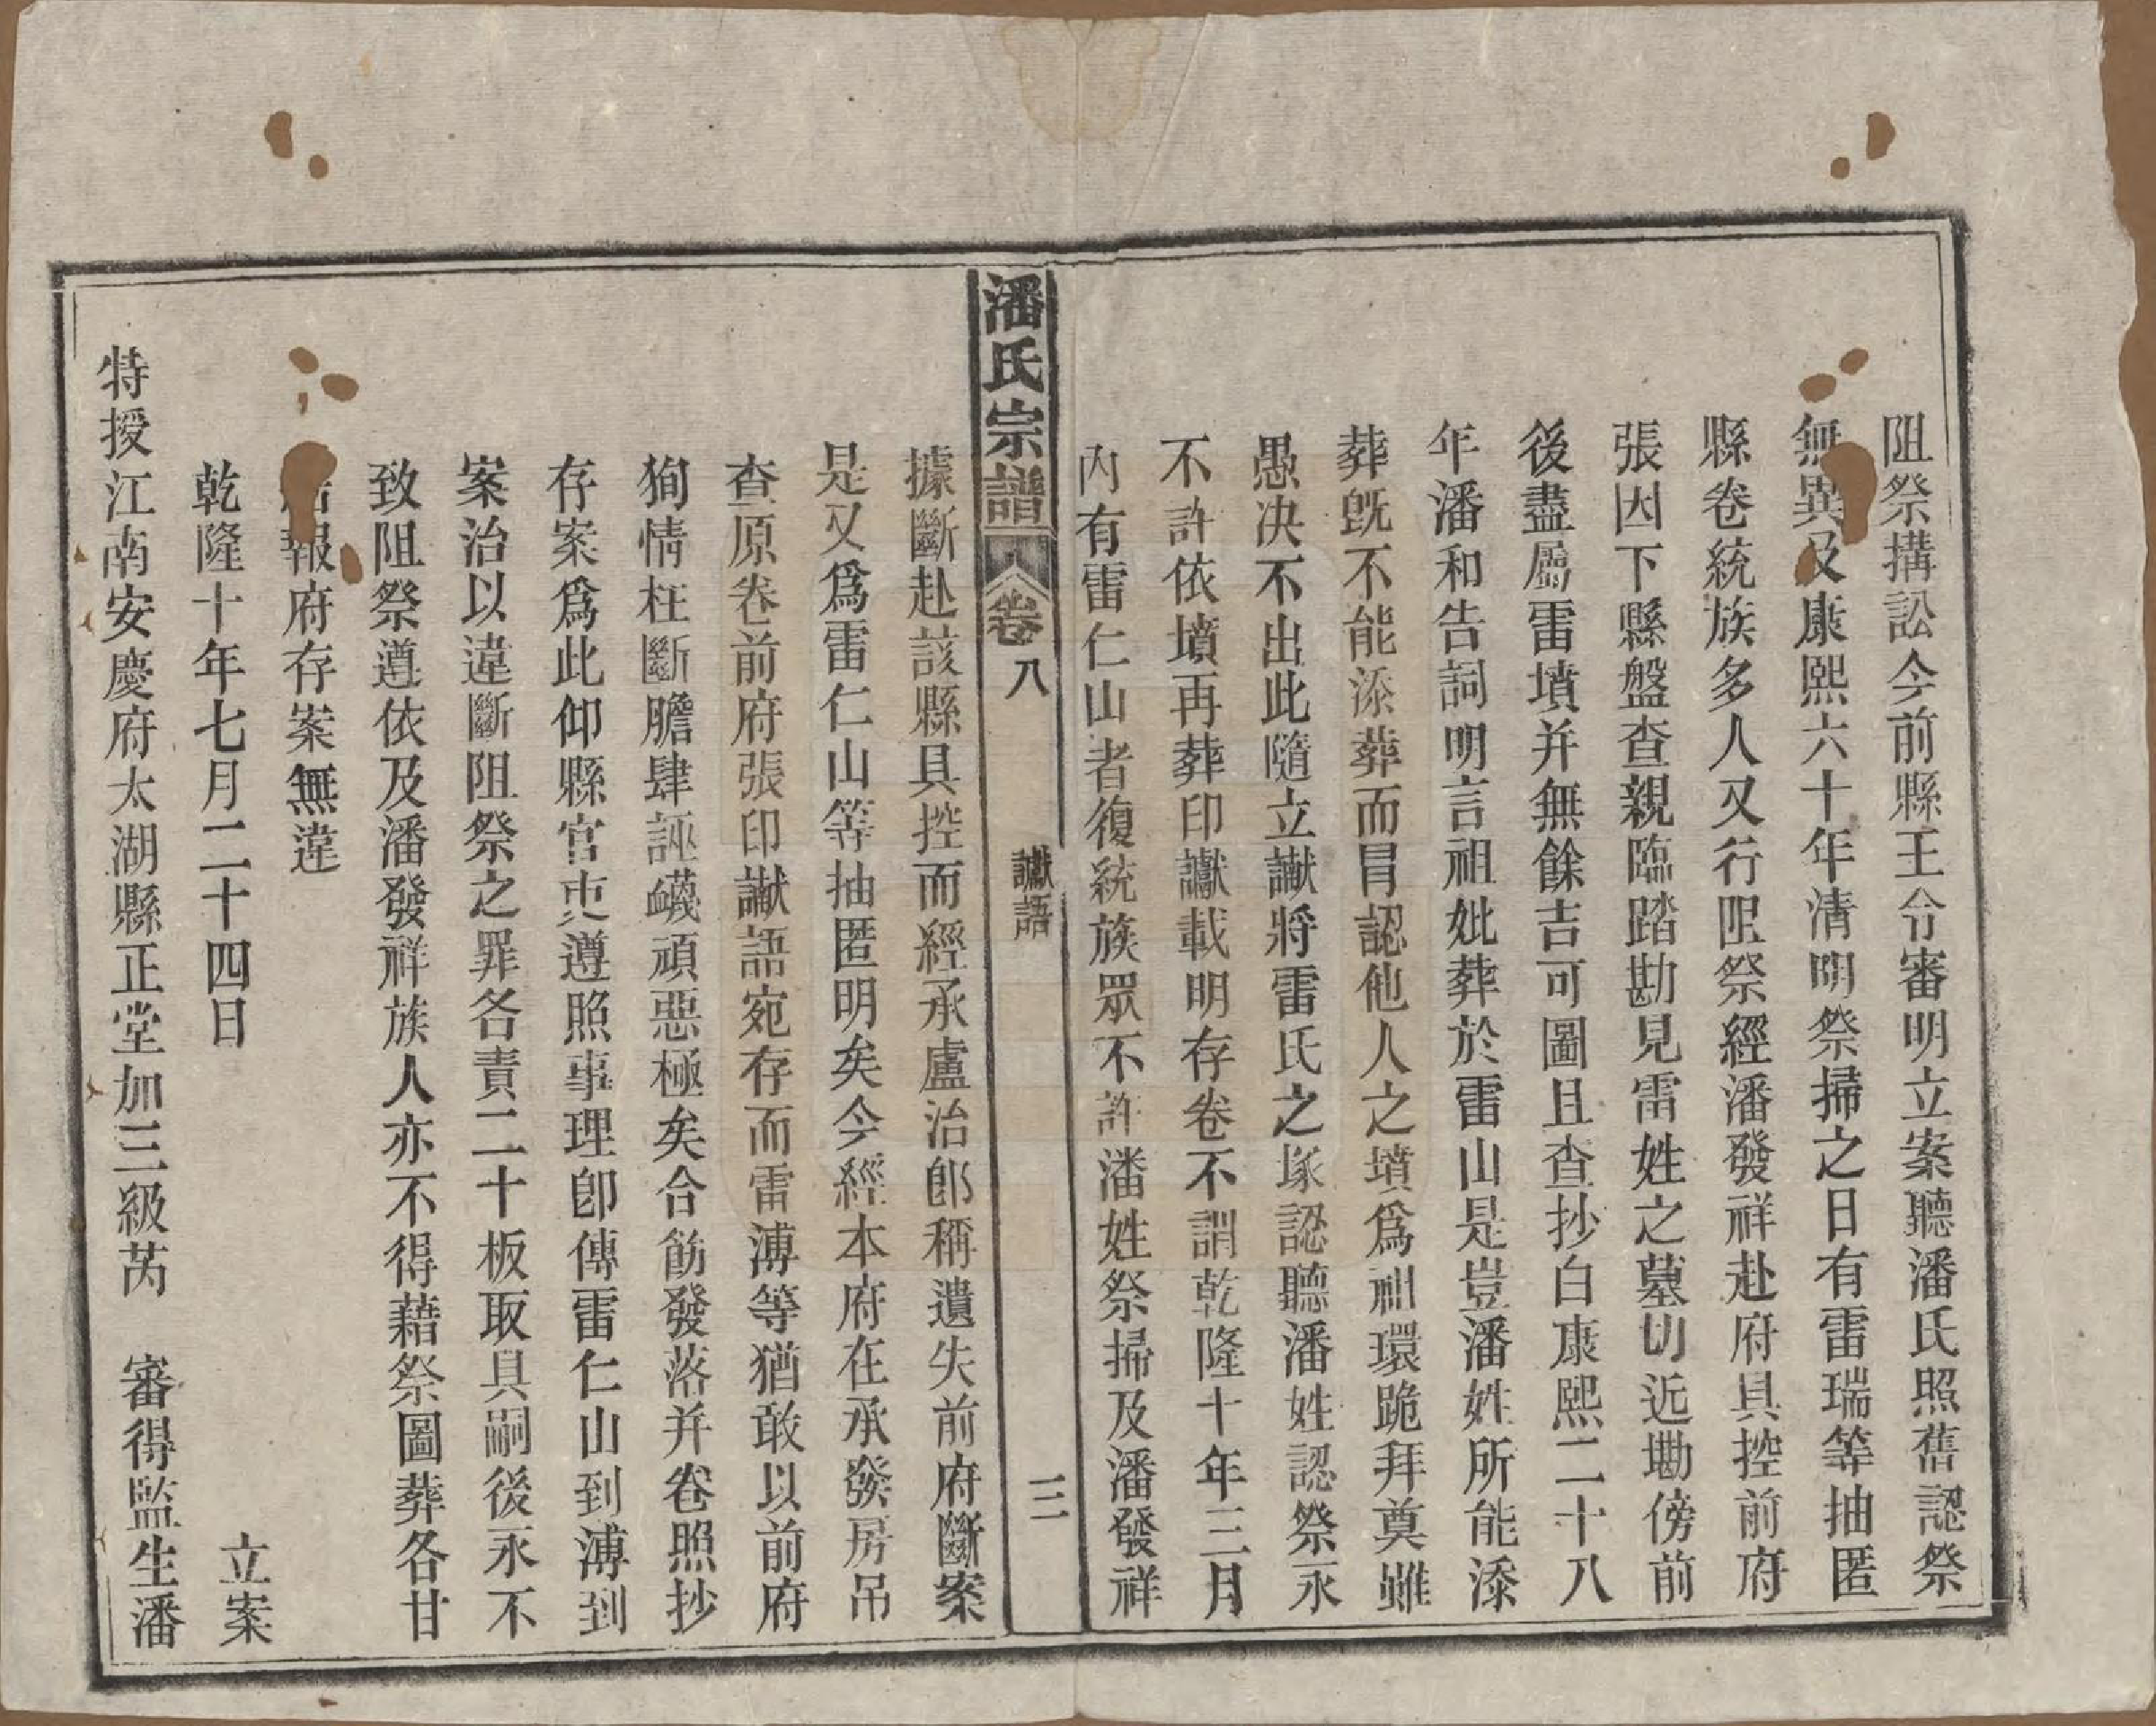 阻祭搆訟今前縣王令審明立案聽潘氏照舊認祭
無異及康熙六十年清明祭掃之日有雷瑞等抽匿
縣卷統族多人又行阻祭經潘發祥赴府具控前府
張因下縣盤查親臨踏勘見雷姓之墓切近墈傍前
後盡屬雷墳并無餘吉可圖且查抄白康熙二十八
年潘和告詞明言祖妣葬於雷山是豈潘姓所能添
葬旣不能添葬而冐認他人之墳爲祖環跪拜奠雖
愚决不出此隨立讞將雷氏之塚認聽潘姓認祭永
不許依墳再葬印讞載明存卷不謂乾隆十年三月
內有雷仁山者復統族眾不許潘姓祭掃及潘發祥
潘氏宗譜 卷八 讞語 三
據斷赴該縣具控而經承盧治郎稱遺失前府斷案
是又爲雷仁山等抽匿明矣今經本府在承發房吊
查原卷前府張印讞語宛存而雷溥等猶敢以前府
狥情枉斷膽肆誣衊頑惡極矣合飭發落并卷照抄
存案爲此仰縣官吏遵照事理卽傳雷仁山到溥到
案治以違斷阻祭之罪各責二十板取具嗣後永不
致阻祭遵依及潘發祥族人亦不得藉祭圖葬各甘
報府存案無違
乾隆十年七月二十四日 立案
特授江南安慶府太湖縣正堂加三級芮 審得監生潘